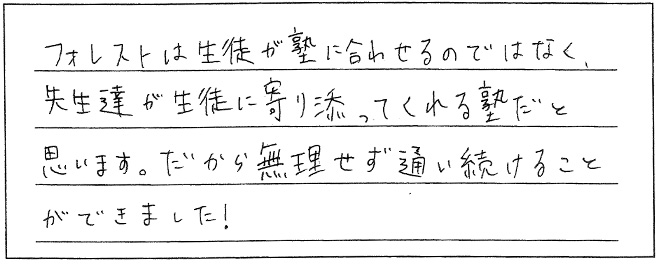 フォレストは生徒が塾に合わせるのではなく、
先生達が生徒に寄り添ってくれる塾だと
思います。だから無理せず通い続けること
ができました!